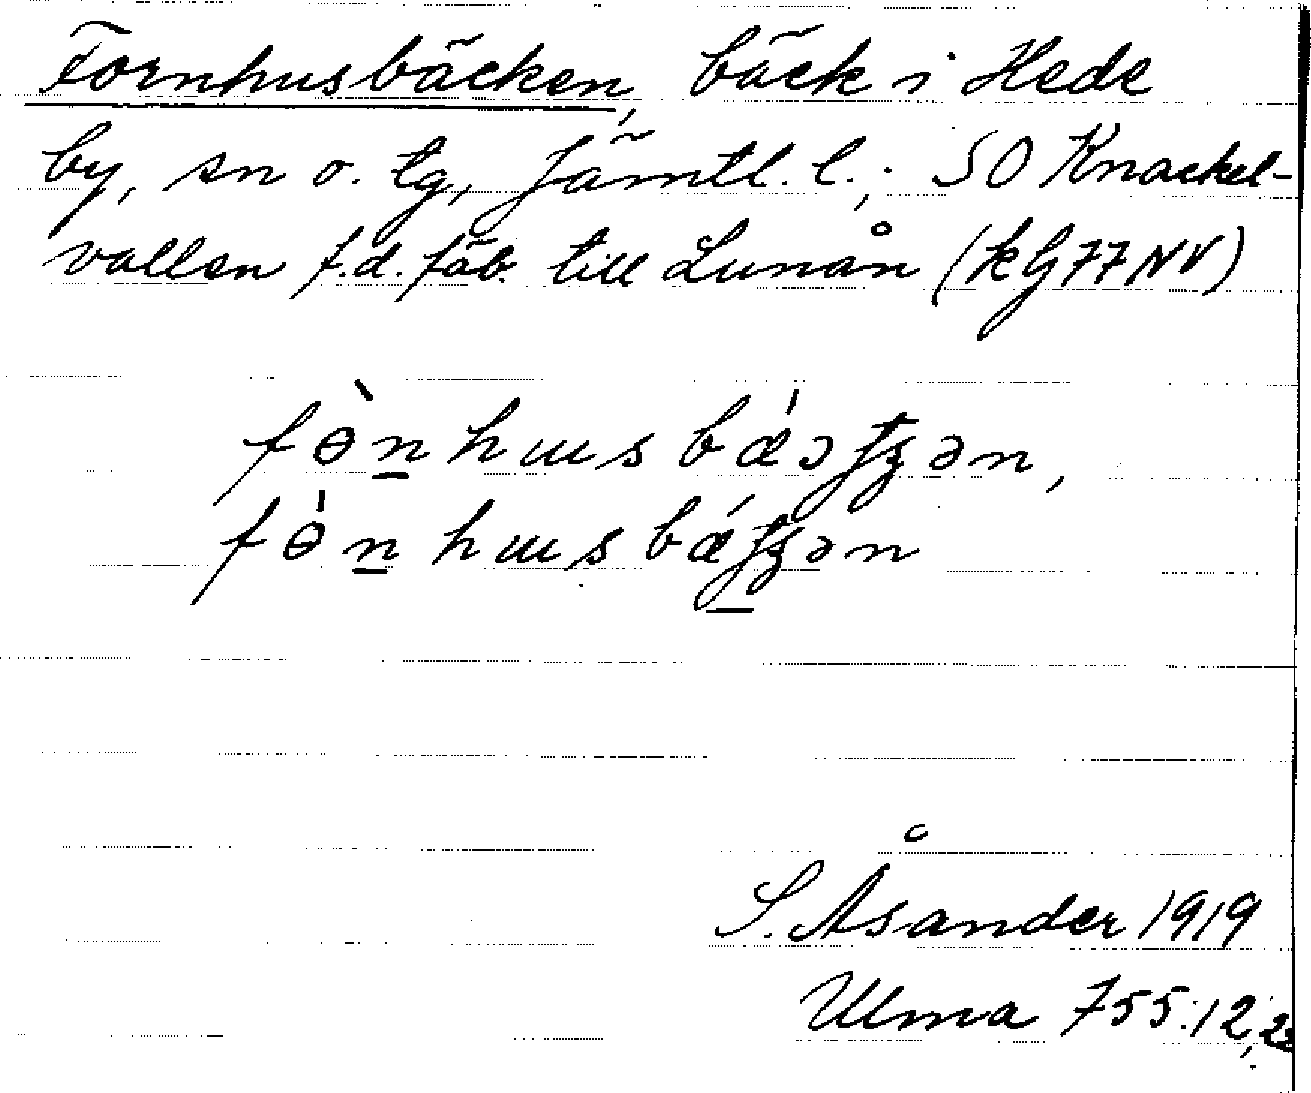 Fornhusbäcken, bäck i Hede
by, sn o. tg, Jämtl. l.; SO Knackel-
vallen f.d. fäb. till Lunån (kG77NV)
fɵ̀n̲husbǽɔʃʒən,
fɵ́n̲husbǽʃʒən
S. Åsander 1919
Ulma 755:12,23